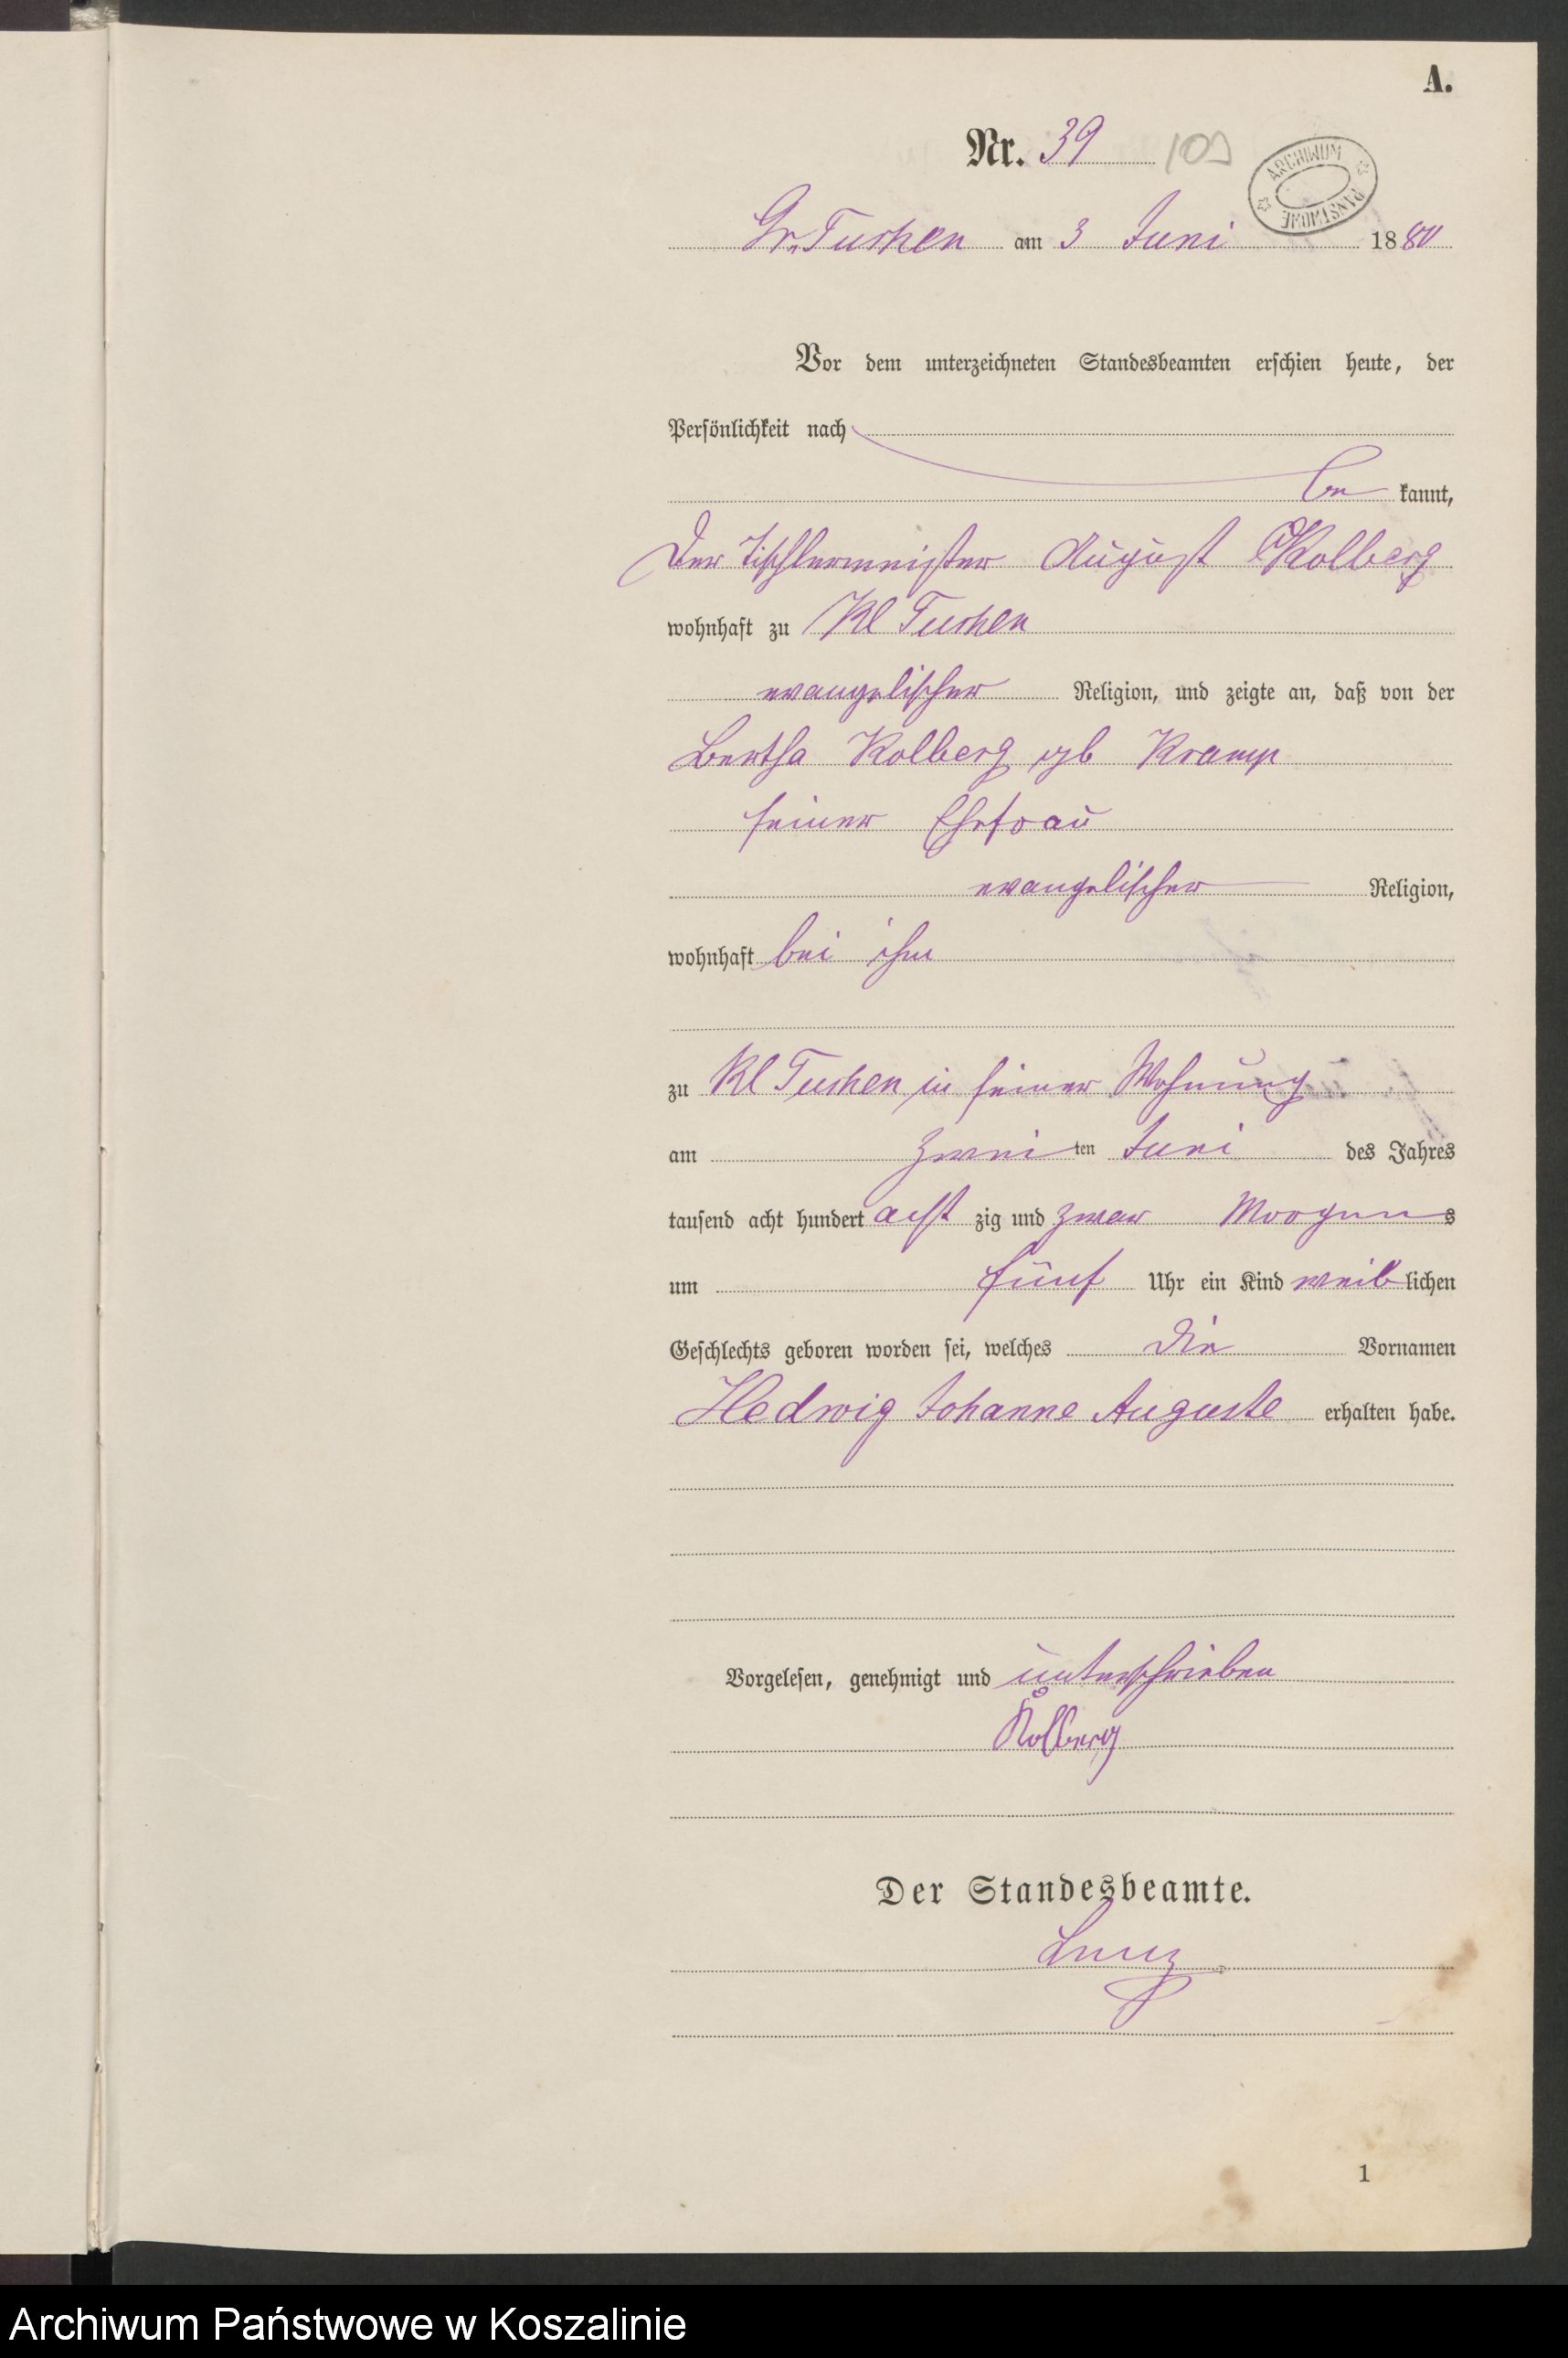 A.
Nr. 39 109
ARCHIWUM PAŃSTWOWE
Gr. Tuchen am 3 Juni 1880
Vor dem unterzeichneten Standesbeamten erschien heute, der
Persönlichkeit nach
be kannt,
Der Tischlermeister August Kolberg
wohnhaft zu Kl Tuchen
evangelischer Religion, und zeigte an, daß von der
Bertha Kolberg gb Kramp
seiner Ehefrau
evangelischer Religion,
wohnhaft bei ihm
zu Kl Tuchen in seiner Wohnung
am zwei ten Juni des Jahres
tausend acht hundert acht zig und zwar Morgens
um fünf Uhr ein Kind weiblichen
Geschlechts geboren worden sei, welches die Vornamen
Hedwig Johanne Auguste erhalten habe.
Vorgelesen, genehmigt und unterschrieben
Kolberg
Der Standesbeamte.
1
Archiwum Państwowe w Koszalinie